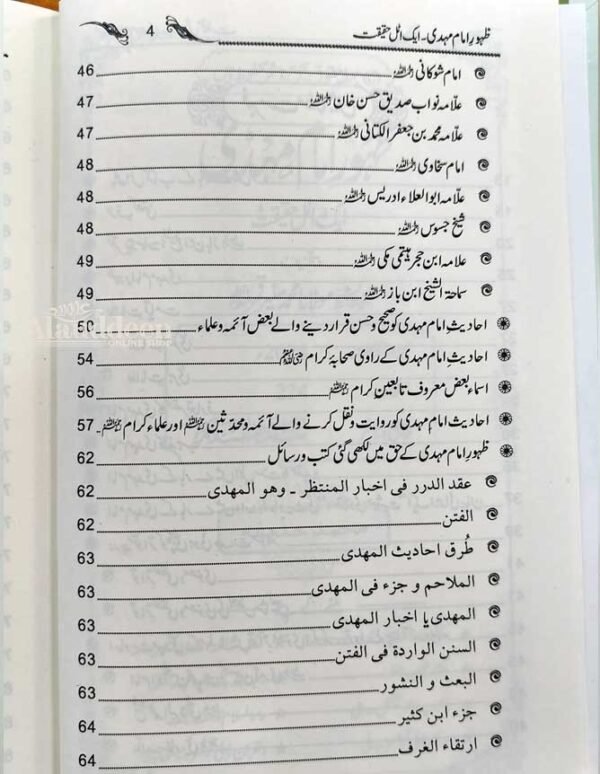 ظہورِ امام مہدی۔ ایک اٹل حقیقت 4
امام شوکانی رحمہ اللہ 46
علّامہ نواب صدیق حسن خان رحمہ اللہ 47
علّامہ محمد بن جعفر الکتانی رحمہ اللہ 47
امام سخاوی رحمہ اللہ 48
علّامہ ابو العلاء ادریس رحمہ اللہ 48
شیخ جسوس رحمہ اللہ 48
علامہ ابن حجر ہیتمی مکی رحمہ اللہ 49
سماحۃ الشیخ ابن باز رحمہ اللہ 49
احادیثِ امام مہدی کو صحیح و حسن قرار دینے والے بعض آئمہ و علماء 50
احادیثِ امام مہدی کے راوی صحابۂ کرام 54
اسماء بعض معروف تابعین کرام 56
احادیث امام مہدی کو روایت و نقل کرنے والے آئمہ و محدّثین اور علماء کرام 57
ظہورِ امام مہدی کے حق میں لکھی گئی کتب و رسائل 62
عقد الدرر فی اخبار المنتظر ۔ وھو المھدی 62
الفتن 62
طُرق احادیث المھدی 63
الملاحم و جزء فی المھدی 63
المھدی یا اخبار المھدی 63
السنن الواردة فی الفتن 63
البعث و النشور 63
جزء ابن کثیر 64
ارتقاء الغرف 64
Alaaddeen
ONLINE SHOP